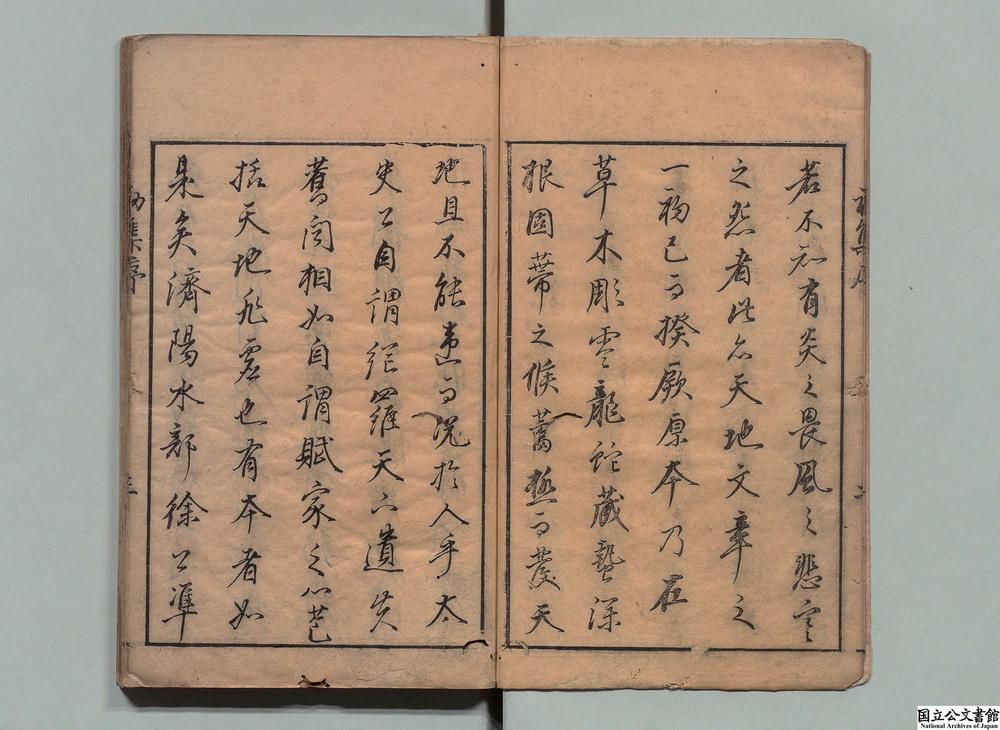 若不知有炎之畏風之悲寒
之怨者此亦天地文章之
一物已而揆厥原本乃在
草木彫零龍蛇藏蟄深
根固蒂之候蓄極而發天
地且不能違而況於人乎太
史公自謂網羅天下遺失
舊聞相如自謂賦家之心苞
括天地非虛也有本者如
是矣濟陽水部徐公準
集序
三
国立公文書館
National Archives of Japan